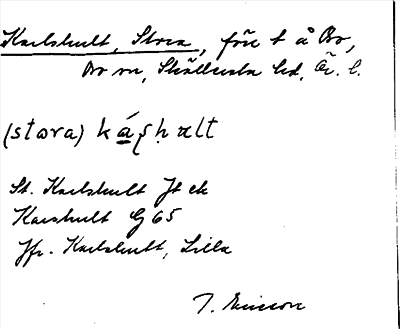 Karlshult, Stora, förr t å Bo,
Bo sn, Skyllersta hd, Ör. l.
(stora) káʂḥult
St. Karlshult Jt ek
Karshult G 65
Jfr. Karlshult, Lilla
T. Ericsson